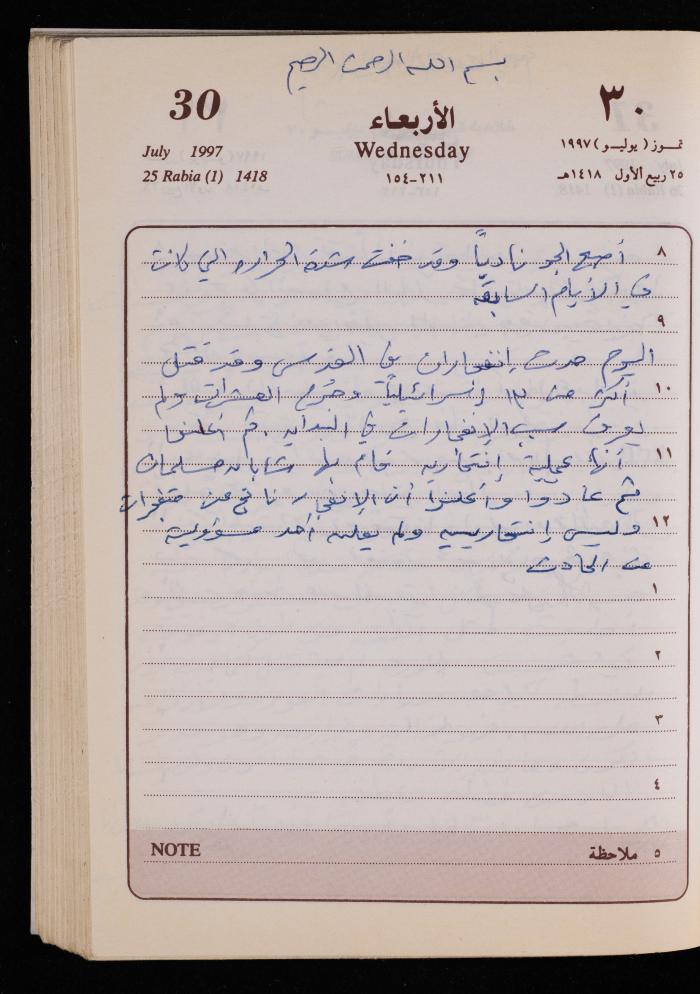 بسم الله الرحمن الرحيم
30 الأربعاء ٣٠
July 1997 Wednesday تمـوز ( يوليـو ) ١٩٩٧
25 Rabia (1) 1418 ٢١١-١٥٤ ٢٥ ربيع الأول ١٤١٨هـ
٨ أصبح الجو نادياً وقد خفت شدة الحراره التي كانت
في الأيام السابقه
٩
اليوم حدث إنفجاران في القدس وقد قتل
١٠ أكثر من ١٣ إسرائيلياً وجرح العشرات ولم
يعرف سبب الإنفجارات في البدايه . ثم أعلنوا
١١ أنها عملية إنتحاريه قام بها شابان مسلمان
ثم عادوا وأعلنوا أن الإنفجار ناتج عن متفجرات
١٢ وليس إنتحاريين ولم يعلن أحد مسؤولية
عن الحادث
١
٢
٣
٤
NOTE ٥ ملاحظة